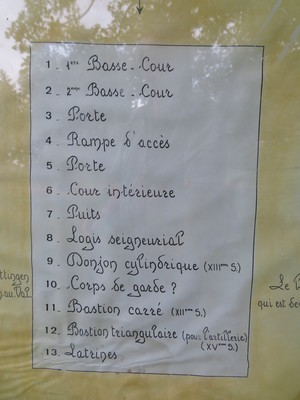 1 - 1ère Basse-Cour
2 - 2ème Basse-Cour
3 - Porte
4 - Rampe d'accès
5 - Porte
6 - Cour intérieure
7 - Puits
8 - Logis seigneurial
9 - Donjon cylindrique (XIIIème S.)
10. Corps de garde ?
11 - Bastion carré (XIIème S.)
12. Bastion triangulaire (pour l'artillerie)
(XVème S.)
13. Latrines
tlingen
Le
qui est